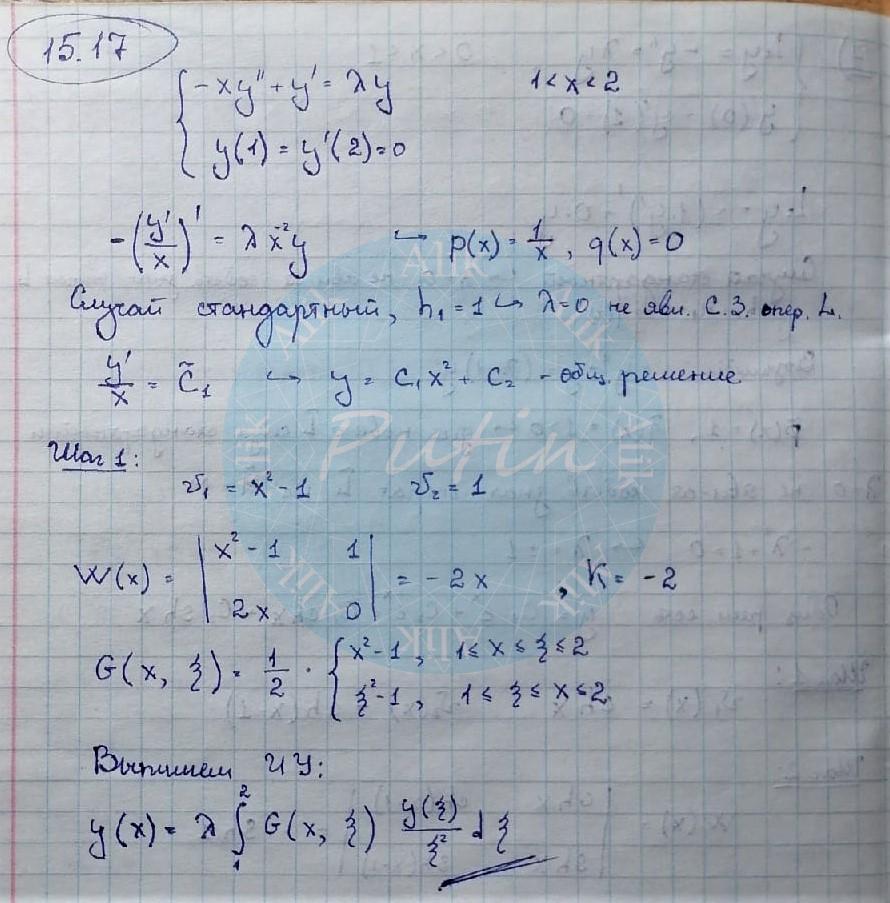 15.17
{ -xy'' + y' = λy      1 < x < 2
y(1) = y'(2) = 0
-(y'/x)' = λ x⁻² y ↪ p(x) = 1/x, q(x) = 0
Случай стандартный, h₁ = 1 ↪ λ=0 не явл. С.З. опер. L.
y'/x = C̃₁ ↪ y = C₁x² + C₂ - общ. решение
Шаг 1:
v₁ = x² - 1      v₂ = 1
W(x) = | x² - 1   1 |
| 2x   0 | = -2x , K = -2
G(x, ξ) = 1/2 · { x² - 1, 1 ≤ x ≤ ξ ≤ 2
ξ² - 1, 1 ≤ ξ ≤ x ≤ 2
Выпишем ИУ:
y(x) = λ ∫₁² G(x, ξ) y(ξ)/ξ² dξ
Putin
Alik
Alik
Alik
Alik
Alik
Alik
Alik
Alik